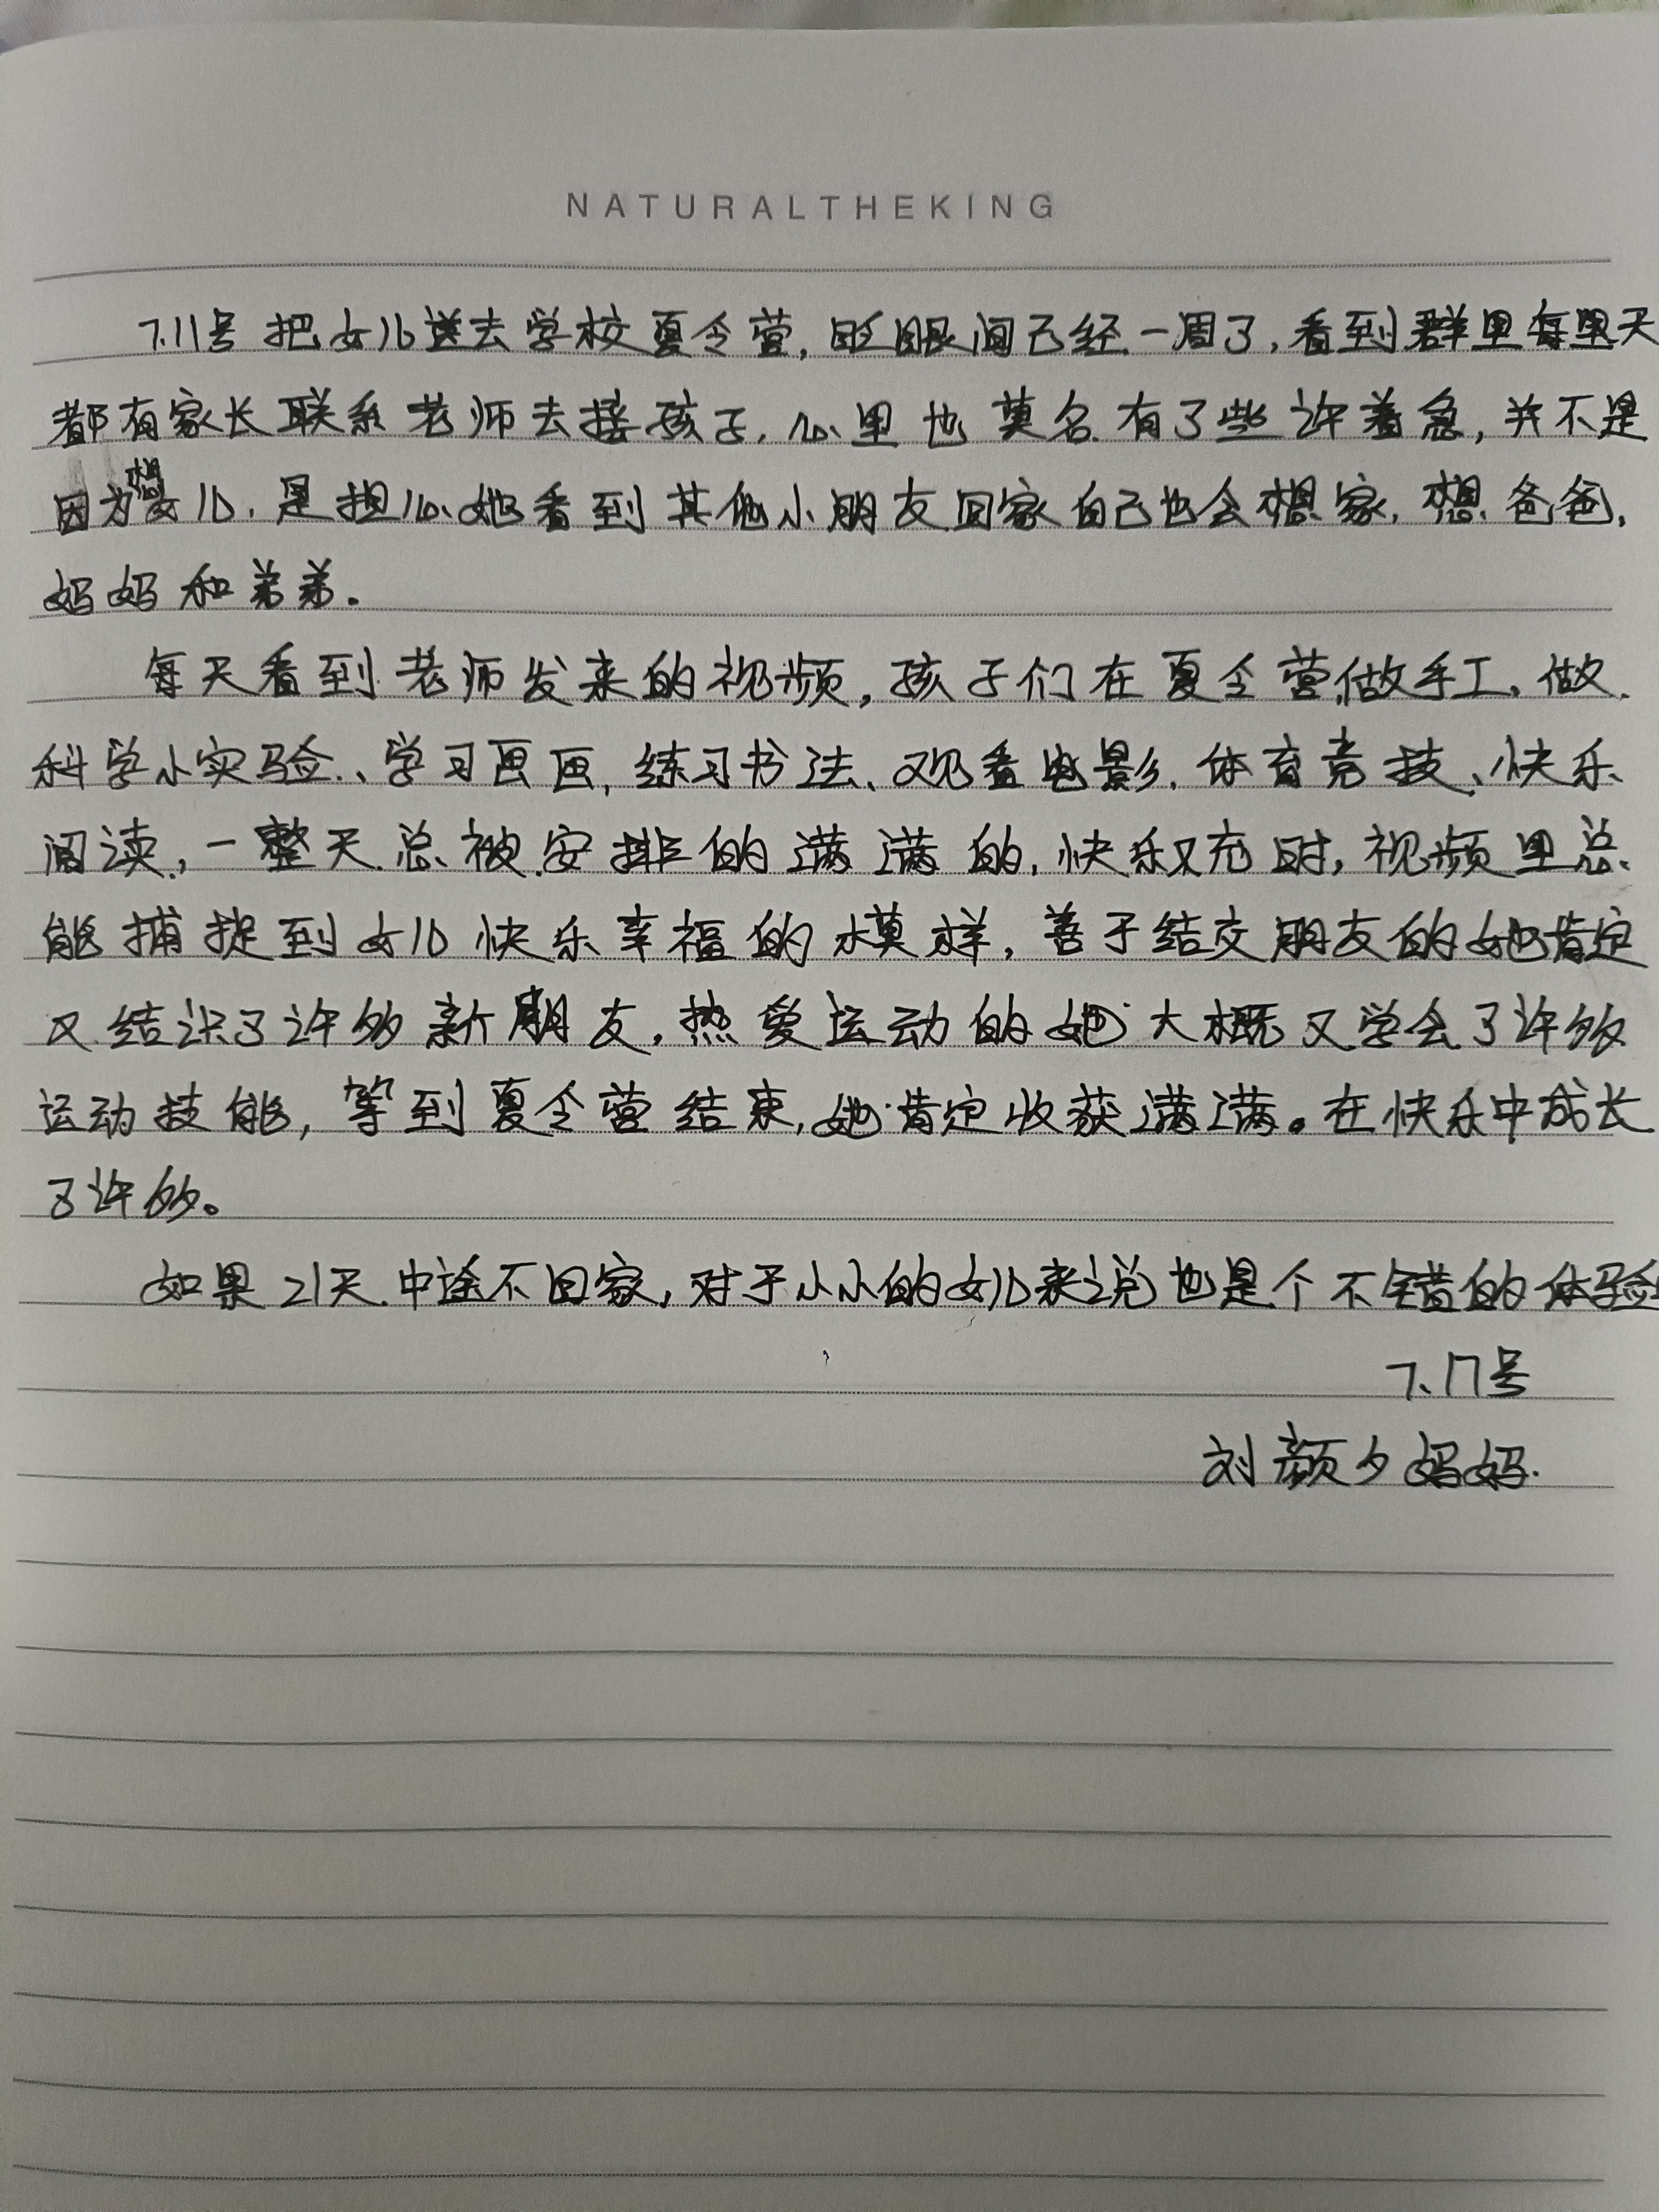 NATURALTHEKING
7.11号把女儿送去学校夏令营,眨眼间已经一周了,看到群里每天
都有家长联系老师去接孩子,心里也莫名有了些许着急,并不是
因为想女儿,是担心她看到其他小朋友回家自己也会想家,想爸爸,
妈妈和弟弟.
每天看到老师发来的视频,孩子们在夏令营做手工,做
科学小实验、学习画画,练习书法、观看电影,体育竞技、快乐
阅读,一整天总被安排的满满的,快乐又充时,视频里总
能捕捉到女儿快乐幸福的模样,善于结交朋友的她肯定
又结识了许多新朋友,热爱运动的她大概又学会了许多
运动技能,等到夏令营结束,她肯定收获满满。在快乐中成长
了许多。
如果21天中途不回家,对于小小的女儿来说也是个不错的体验
7、17号
刘颜夕妈妈.